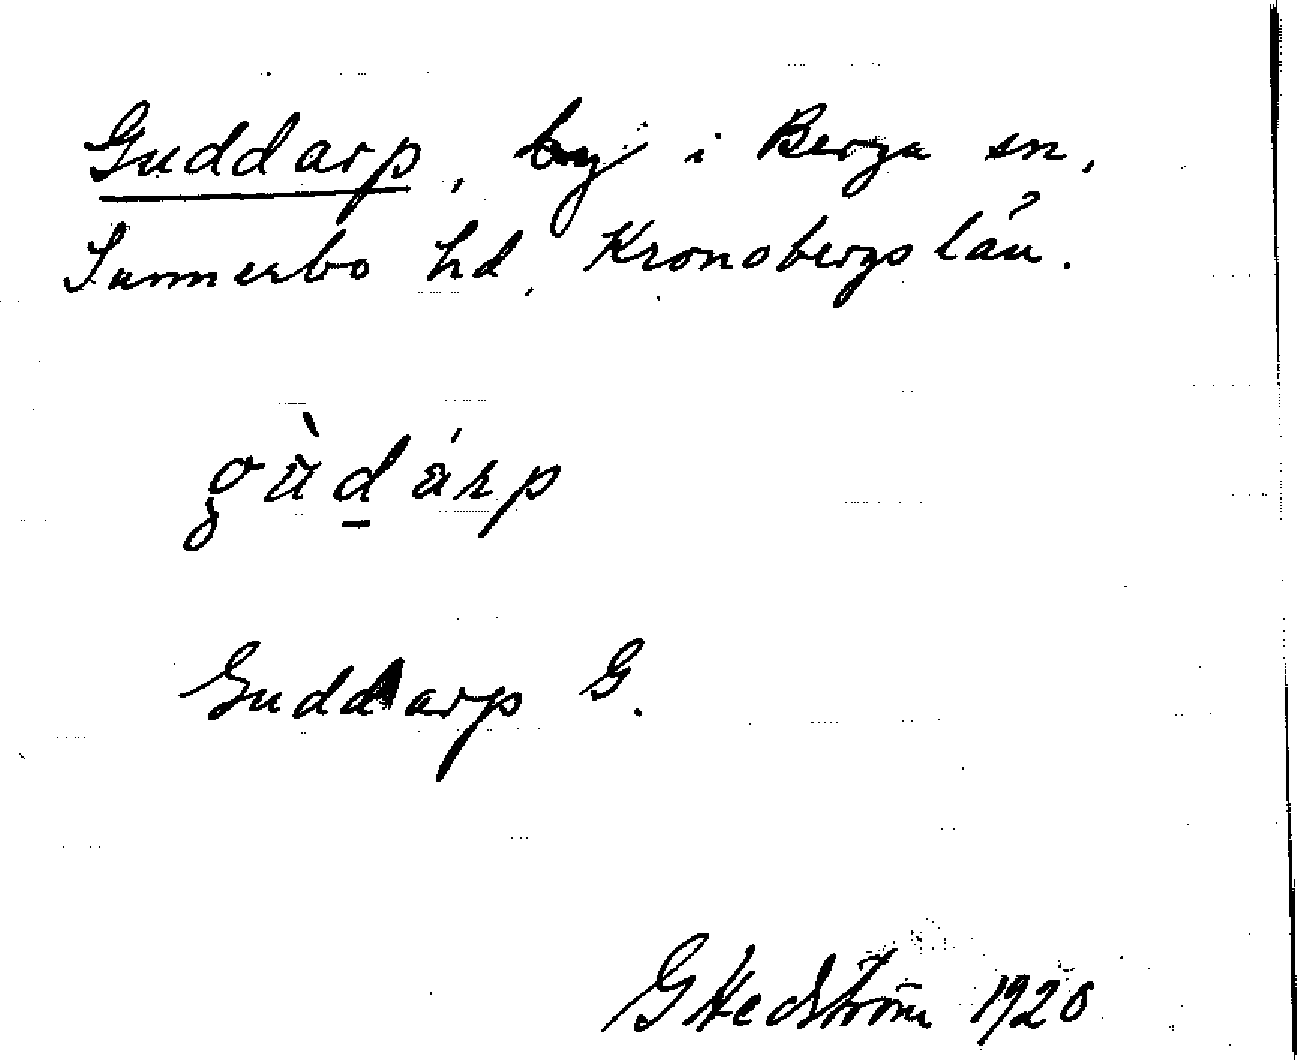 Guddarp, by i Berga sn,
Sunnerbo hd, Kronobergs län.
gùd̲árp
Guddarp G.
G Hedström 1920